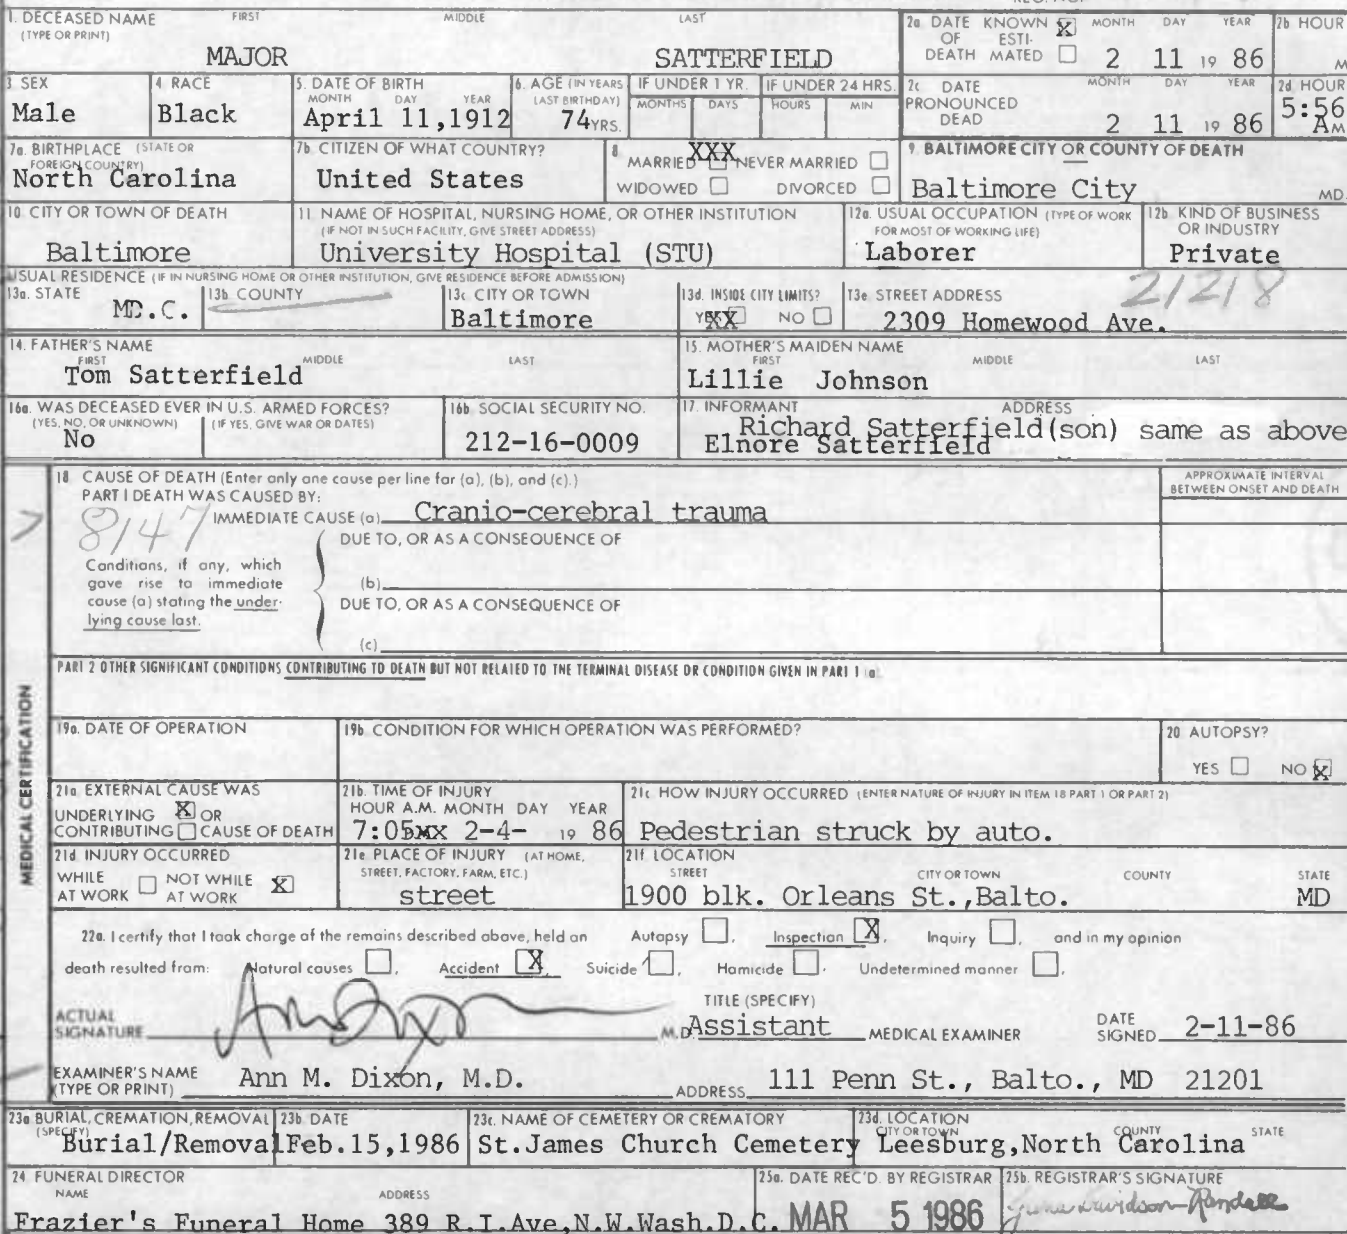 1. DECEASED NAME FIRST MIDDLE LAST
(TYPE OR PRINT)
MAJOR SATTERFIELD
2a DATE KNOWN X MONTH DAY YEAR
OF ESTI-
DEATH MATED 2 11 19 86
2b HOUR
M
3 SEX
Male
4 RACE
Black
5. DATE OF BIRTH
MONTH DAY YEAR
April 11,1912
6. AGE (IN YEARS
LAST BIRTHDAY)
74 YRS.
IF UNDER 1 YR.
MONTHS DAYS
IF UNDER 24 HRS.
HOURS MIN
2c DATE MONTH DAY YEAR
PRONOUNCED
DEAD 2 11 19 86
2d HOUR
5:56
AM
7a. BIRTHPLACE (STATE OR
FOREIGN COUNTRY)
North Carolina
7b. CITIZEN OF WHAT COUNTRY?
United States
8
MARRIED XXX NEVER MARRIED
WIDOWED DIVORCED
9. BALTIMORE CITY OR COUNTY OF DEATH
Baltimore City MD.
10 CITY OR TOWN OF DEATH
Baltimore
11 NAME OF HOSPITAL, NURSING HOME, OR OTHER INSTITUTION
(IF NOT IN SUCH FACILITY, GIVE STREET ADDRESS)
University Hospital (STU)
12a. USUAL OCCUPATION (TYPE OF WORK
FOR MOST OF WORKING LIFE)
Laborer
12b KIND OF BUSINESS
OR INDUSTRY
Private
USUAL RESIDENCE (IF IN NURSING HOME OR OTHER INSTITUTION, GIVE RESIDENCE BEFORE ADMISSION)
13a. STATE
MD.C.
13b COUNTY
13c CITY OR TOWN
Baltimore
13d. INSIDE CITY LIMITS?
YES XX NO
13e STREET ADDRESS 21218
2309 Homewood Ave.
14. FATHER'S NAME
FIRST MIDDLE LAST
Tom Satterfield
15. MOTHER'S MAIDEN NAME
FIRST MIDDLE LAST
Lillie Johnson
16a. WAS DECEASED EVER IN U.S. ARMED FORCES?
(YES, NO, OR UNKNOWN) (IF YES, GIVE WAR OR DATES)
No
16b SOCIAL SECURITY NO.
212-16-0009
17. INFORMANT ADDRESS
Richard Satterfield(son) same as above
Elnore Satterfield
18 CAUSE OF DEATH (Enter only one cause per line for (a), (b), and (c).)
PART I DEATH WAS CAUSED BY:
APPROXIMATE INTERVAL
BETWEEN ONSET AND DEATH
8147
IMMEDIATE CAUSE (a) Cranio-cerebral trauma
DUE TO, OR AS A CONSEQUENCE OF
Conditions, if any, which
gave rise to immediate
cause (a) stating the under-
lying cause last.
(b)
DUE TO, OR AS A CONSEQUENCE OF
(c)
PART 2 OTHER SIGNIFICANT CONDITIONS CONTRIBUTING TO DEATH BUT NOT RELATED TO THE TERMINAL DISEASE OR CONDITION GIVEN IN PART 1 (a)
MEDICAL CERTIFICATION
19a. DATE OF OPERATION
19b CONDITION FOR WHICH OPERATION WAS PERFORMED?
20 AUTOPSY?
YES NO X
21a EXTERNAL CAUSE WAS
UNDERLYING X OR
CONTRIBUTING CAUSE OF DEATH
21b. TIME OF INJURY
HOUR A.M. MONTH DAY YEAR
7:05xx 2-4- 19 86
21c HOW INJURY OCCURRED (ENTER NATURE OF INJURY IN ITEM 18 PART 1 OR PART 2)
Pedestrian struck by auto.
21d INJURY OCCURRED
WHILE NOT WHILE X
AT WORK AT WORK
21e PLACE OF INJURY (AT HOME,
STREET, FACTORY, FARM, ETC.)
street
21f LOCATION
STREET CITY OR TOWN COUNTY STATE
1900 blk. Orleans St.,Balto. MD
22a. I certify that I took charge of the remains described above, held an Autopsy , Inspection X , Inquiry , and in my opinion
death resulted from: Natural causes , Accident X Suicide , Homicide . Undetermined manner ,
ACTUAL
SIGNATURE Ann Dixon M.D.
TITLE (SPECIFY)
Assistant MEDICAL EXAMINER
DATE
SIGNED 2-11-86
EXAMINER'S NAME
(TYPE OR PRINT) Ann M. Dixon, M.D.
ADDRESS 111 Penn St., Balto., MD 21201
23a BURIAL, CREMATION, REMOVAL
(SPECIFY)
Burial/Removal
23b DATE
Feb.15,1986
23c. NAME OF CEMETERY OR CREMATORY
St.James Church Cemetery
23d. LOCATION
CITY OR TOWN COUNTY STATE
Leesburg,North Carolina
24 FUNERAL DIRECTOR
NAME ADDRESS
Frazier's Funeral Home 389 R.I.Ave,N.W.Wash.D.C.
25a. DATE REC'D. BY REGISTRAR
MAR 5 1986
25b. REGISTRAR'S SIGNATURE
Davidson-Randall